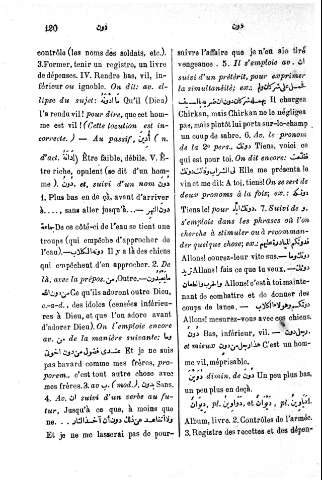 120
دون
دون
contrôle (les noms des soldats, etc.).
3. Former, tenir un registre, un livre
de dépenses. IV. Rendre bas, vil, in-
férieur ou ignoble. On dit: av. el-
lipse du sujet: Qu'il (Dieu)
l'a rendu vil! pour dire, que cet hom-
me est vil! (Cette locution est in-
correcte.) — Au passif,
d'act. Être faible, débile. V. Ê-
tre riche, opulent (se dit d'un hom-
me). دون. et, suivi d'un nom دون
1. Plus bas en de çà, avant d'arriver
à...., sans aller jusqu'à.....
De ce côté-ci de l'eau se tient une
troupe (qui empêche d'approcher de
l'eau). Il y a là des chiens
qui empêchent d'en approcher. 2. De
là, avec la prépos. من. Outre.
Ce qu'ils adorent outre Dieu,
c.-a-d. , des idoles (censées inférieu-
res à Dieu, et que l'on adore avant
d'adorer Dieu). On l'emploie encore
av. من de la manière suivante:
Et je ne suis
pas bavard comme mes frères, pro-
prem. c'est tout autre chose avec
mes frères. 3. av ب (mod.). بدون Sans.
4. Av. ان suivi d'un verbe au fu-
tur, Jusqu'à ce que, à moins que
ne. ...
Et je ne me lasserai pas de pour-
suivre l'affaire que je n'en aie tiré
vengeance. 5. Il s'emploie av. ان
suivi d'un prétérit, pour exprimer
la simultanéité; ex.:
Il chargea
Chirkan, mais Chirkan ne le négligea
pas, mais plutôt lui porta sur-le-champ
un coup de sabre. 6. Ac. le pronom
de la 2e pers. دونك Tiens, voici ce
qui est pour toi. On dit encore:
Elle me présenta le
vin et me dit: A toi, tiens! On se sert de
deux pronoms à la fois; ex.:
Tiens le! pour دونك. 7. Suivi de و,
s'emploie dans les phrases où l'on
cherche à stimuler ou à recomman-
der quelque chose; ex.
Allons! courez-leur vite sus.
Allons! fais ce que tu veux.
Allons! c'est à toi mainte-
nant de combattre et de donner des
coups de lance.
Allons! mesurez-vous avec ces chiens.
دون Bas, inférieur, vil. — رجل دون
et mieux C'est un hom-
me vil, méprisable.
دوين dim. de دون Un peu plus bas,
un peu plus en deçà.
ديوان, pl. دواوين, et ديوان, pl.
Album, livre. 2. Contrôles de l'armée.
3. Registre des recettes et des dépen-